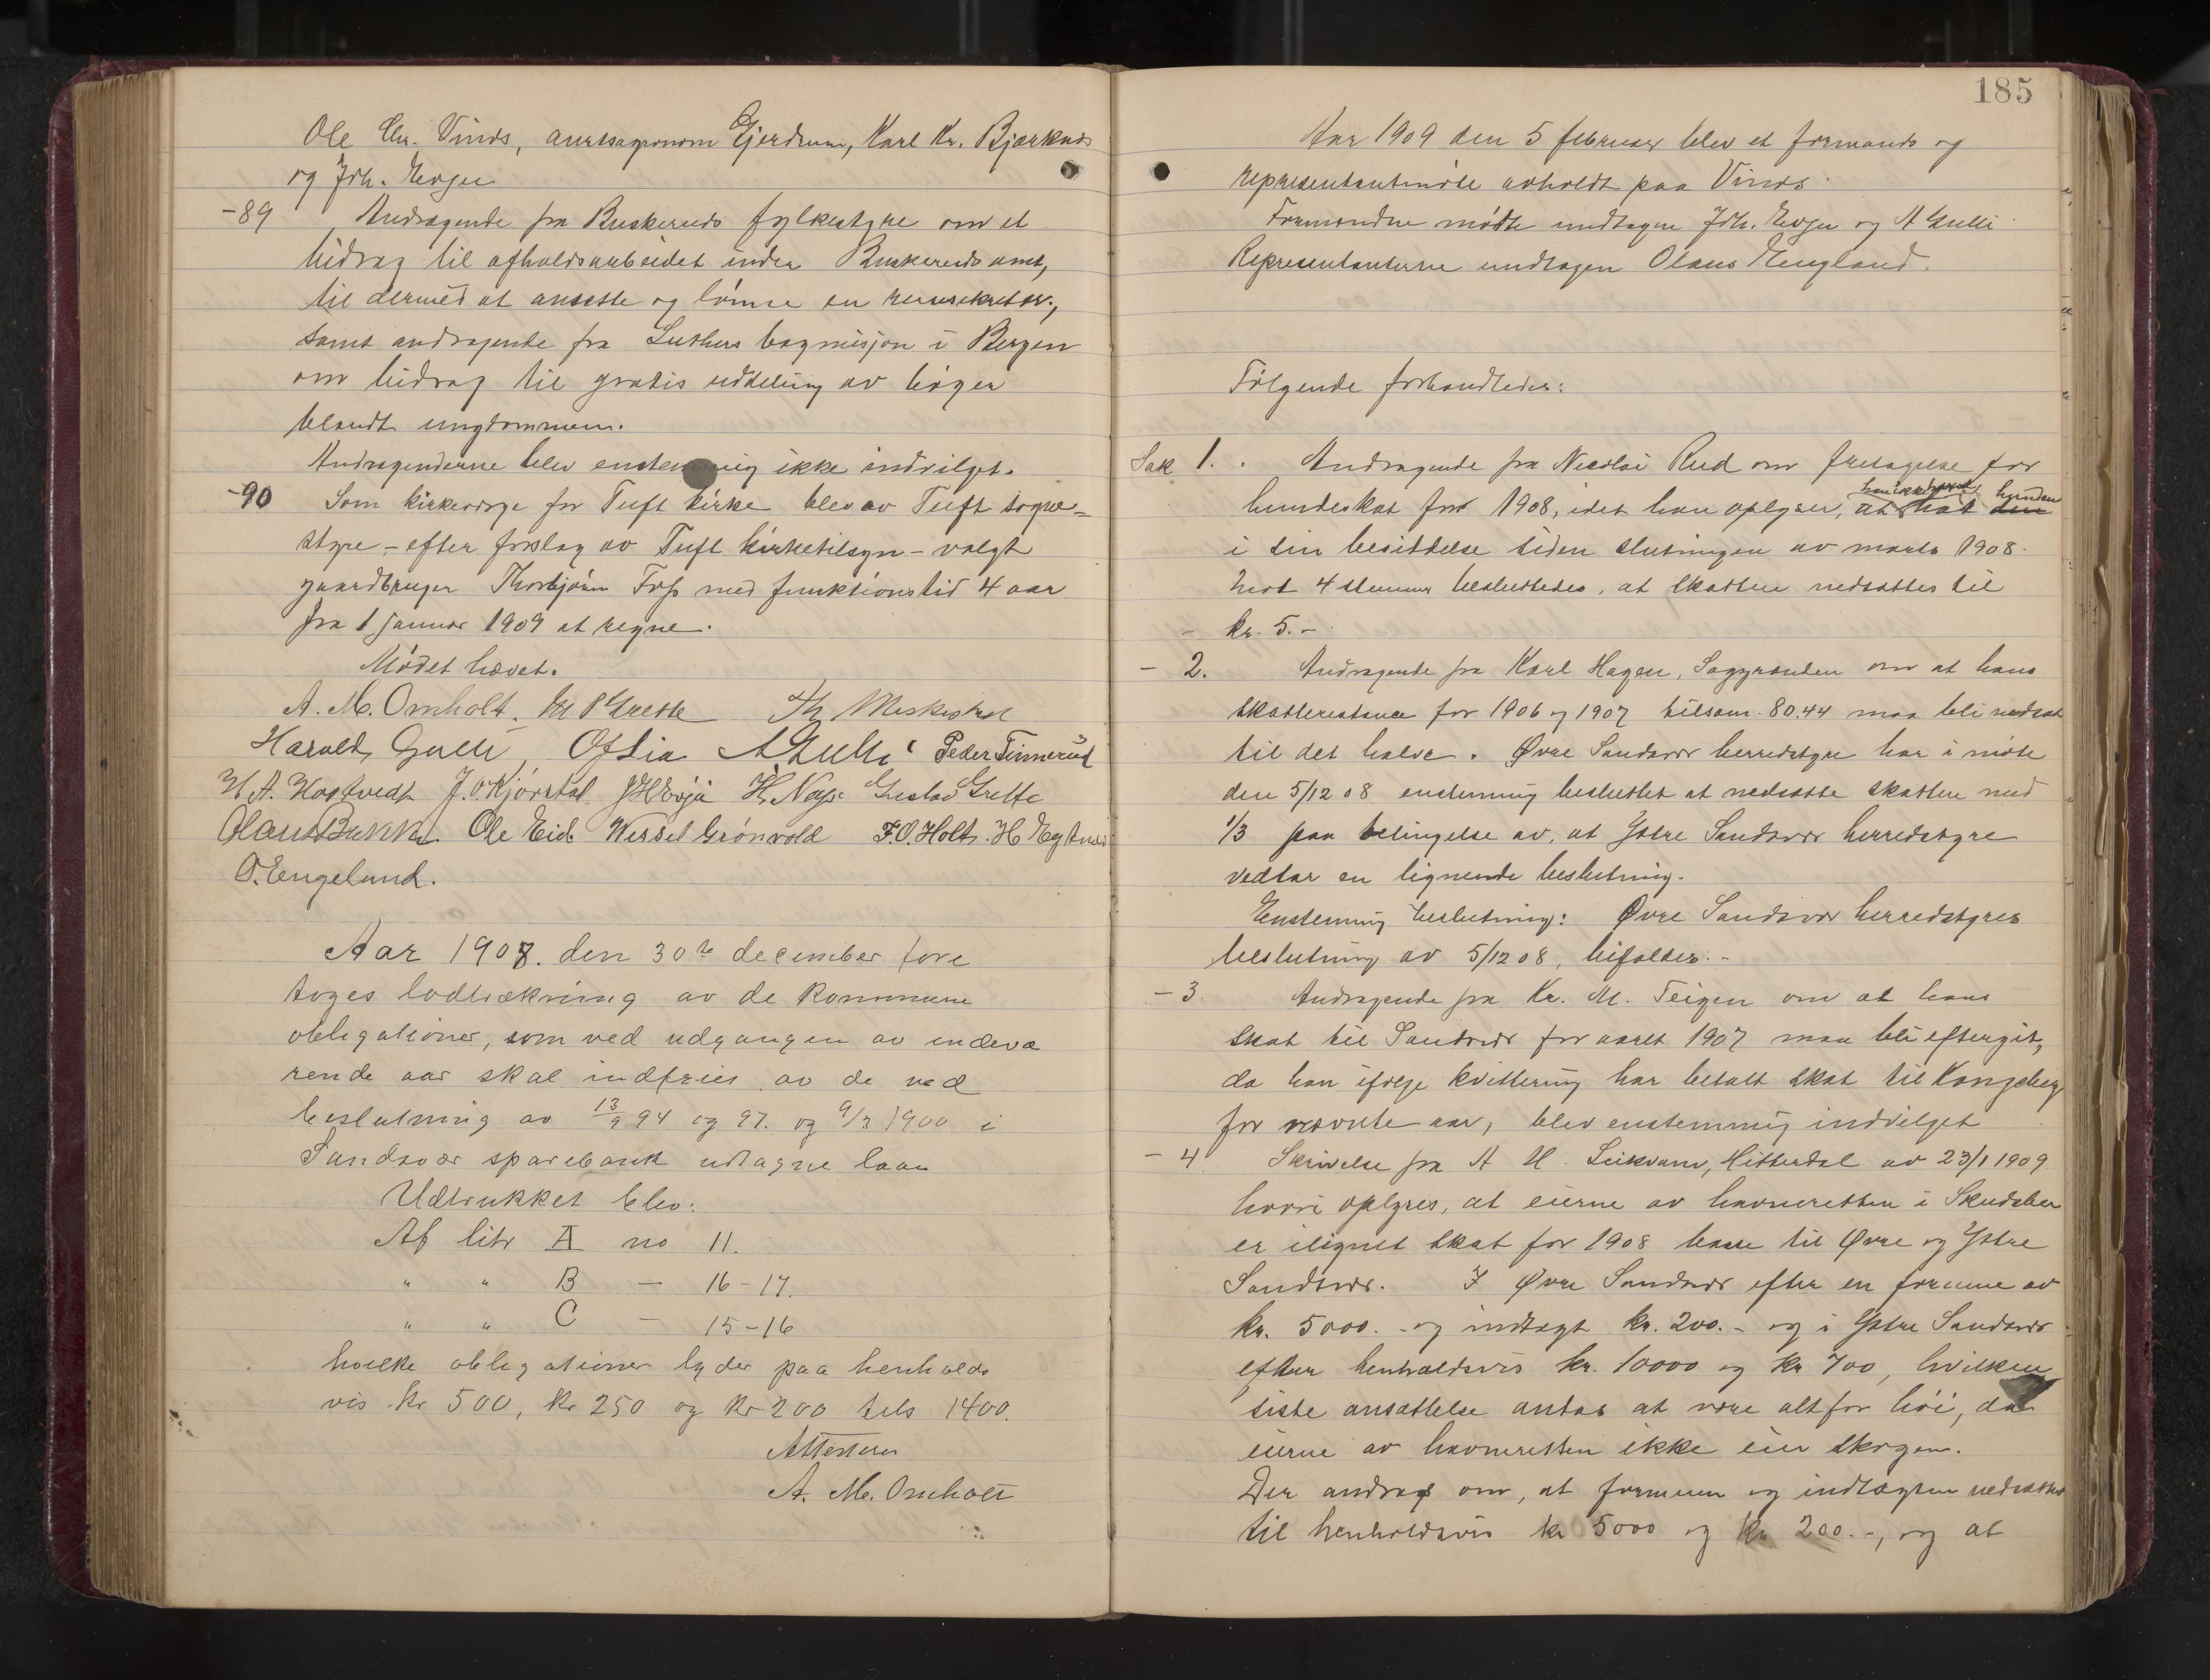 Ole Chr. Vinds, amtsagronom Gjerdrum, Karl Kr. Bjørknes
og Joh. Evju
-89 Andragende fra Buskeruds fylkestyre om et
bidrag til afholdsarbeidet inden Buskeruds amt,
til dermed at ansætte og lønne en reisesekretær,
samt andragende fra Luthers bogmisjon i Bergen
om bidrag til gratis uddeling av bøger
blandt ungdommen.
Andragenderne blev enstemmig ikke indvilget.
-90 Som kirkeverge for Tuft kirke blev av Tuft sogne-
styre - efter forslag av Tuft kirketilsyn - valgt
gaardbruger Thorbjørn Foss med funktionstid 4 aar
fra 1 januar 1909 at regne.
Mødet hævet.
A. M. Omholt. M P Grette Th Meskestad
Harald Gulli O Lia A Gulli Peder Tinnerud
H. A. Hostvedt J. O. Kjørstad J H Evju H. Næss Gustav Grette
Olaus Bakke. Ole Eid. Wessel Grønvold F. O. Holt. H
O. Engelund.
Aar 1908. den 30te december fore
toges lodtrækning av de kommune
obligationer, som ved udgangen av indevæ
rende aar skal indfries av de ved
beslutning av 13/9 94 og 97. og 9/3 1900 i
Sandsvær sparebank udtagne laan
Udtrukket blev:
Af litr A no 11.
" " B — 16-17.
" " C — 15-16
hvilke obligationer lyder paa henholds
vis kr 500, kr 250 og kr 200 tils 1400.
Attesteres
A. M. Omholt
185
Aar 1909 den 5 februar blev et formands og
representantmøte avholdt paa Vinds.
Formændne mødte undtagen Joh. Evju og A Gulli
Representanterne undtagen Olaus England.
Følgende forhandledes:
Sak 1. Andragende fra Nicolai Rud om fritagelse for
hundeskat for 1908, idet han oplyser, at han ikke hunden
i sin besiddelse siden slutningen av marts 1908.
Mot 4 stemmer besluttedes, at skatten nedsættes til
- kr. 5.-
- 2. Andragende fra Karl Hagen, Saggrenden om at hans
skatterestance for 1906 og 1907 tilsam. 80.44 maa bli nedsat
til det halve. Øvre Sandsvær herredstyre har i møte
den 5/12 08 enstemmig besluttet at nedsætte skatten med
1/3 paa betingelse av, at Ytre Sandsvær herredstyre
vedtar en lignende beslutning.
Enstemmig beslutning: Øvre Sandsvær herredstyres
beslutning av 5/12 08, bifaldes.-
- 3 Andragende fra Kr. M. Teigen om at hans
skat til Sandsvær for aaret 1907 maa bli eftergit,
da han ifølge kvittering har betalt skat til Kongsberg
for nævnte aar, blev enstemmig indvilget
- 4. Skrivelse fra A H. Leikvam, Hitterdal av 23/1 1909
hvori oplyses, at eierne av havneretten i
er ilignet skat for 1908 baade til Øvre og Ytre
Sandsvær. I Øvre Sandsvær efter en formue av
kr. 5000.- og indtægt kr. 200.- og i Ytre Sandsvær
efter henholdsvis kr. 10000 og kr 700, hvilken
siste ansættelse antas at være altfor høi, da
eierne av havneretten ikke eier skogen.
Der andrag om, at formuen og indtægten nedsættes
til henholdsvis kr 5000 og kr 200.-, og at